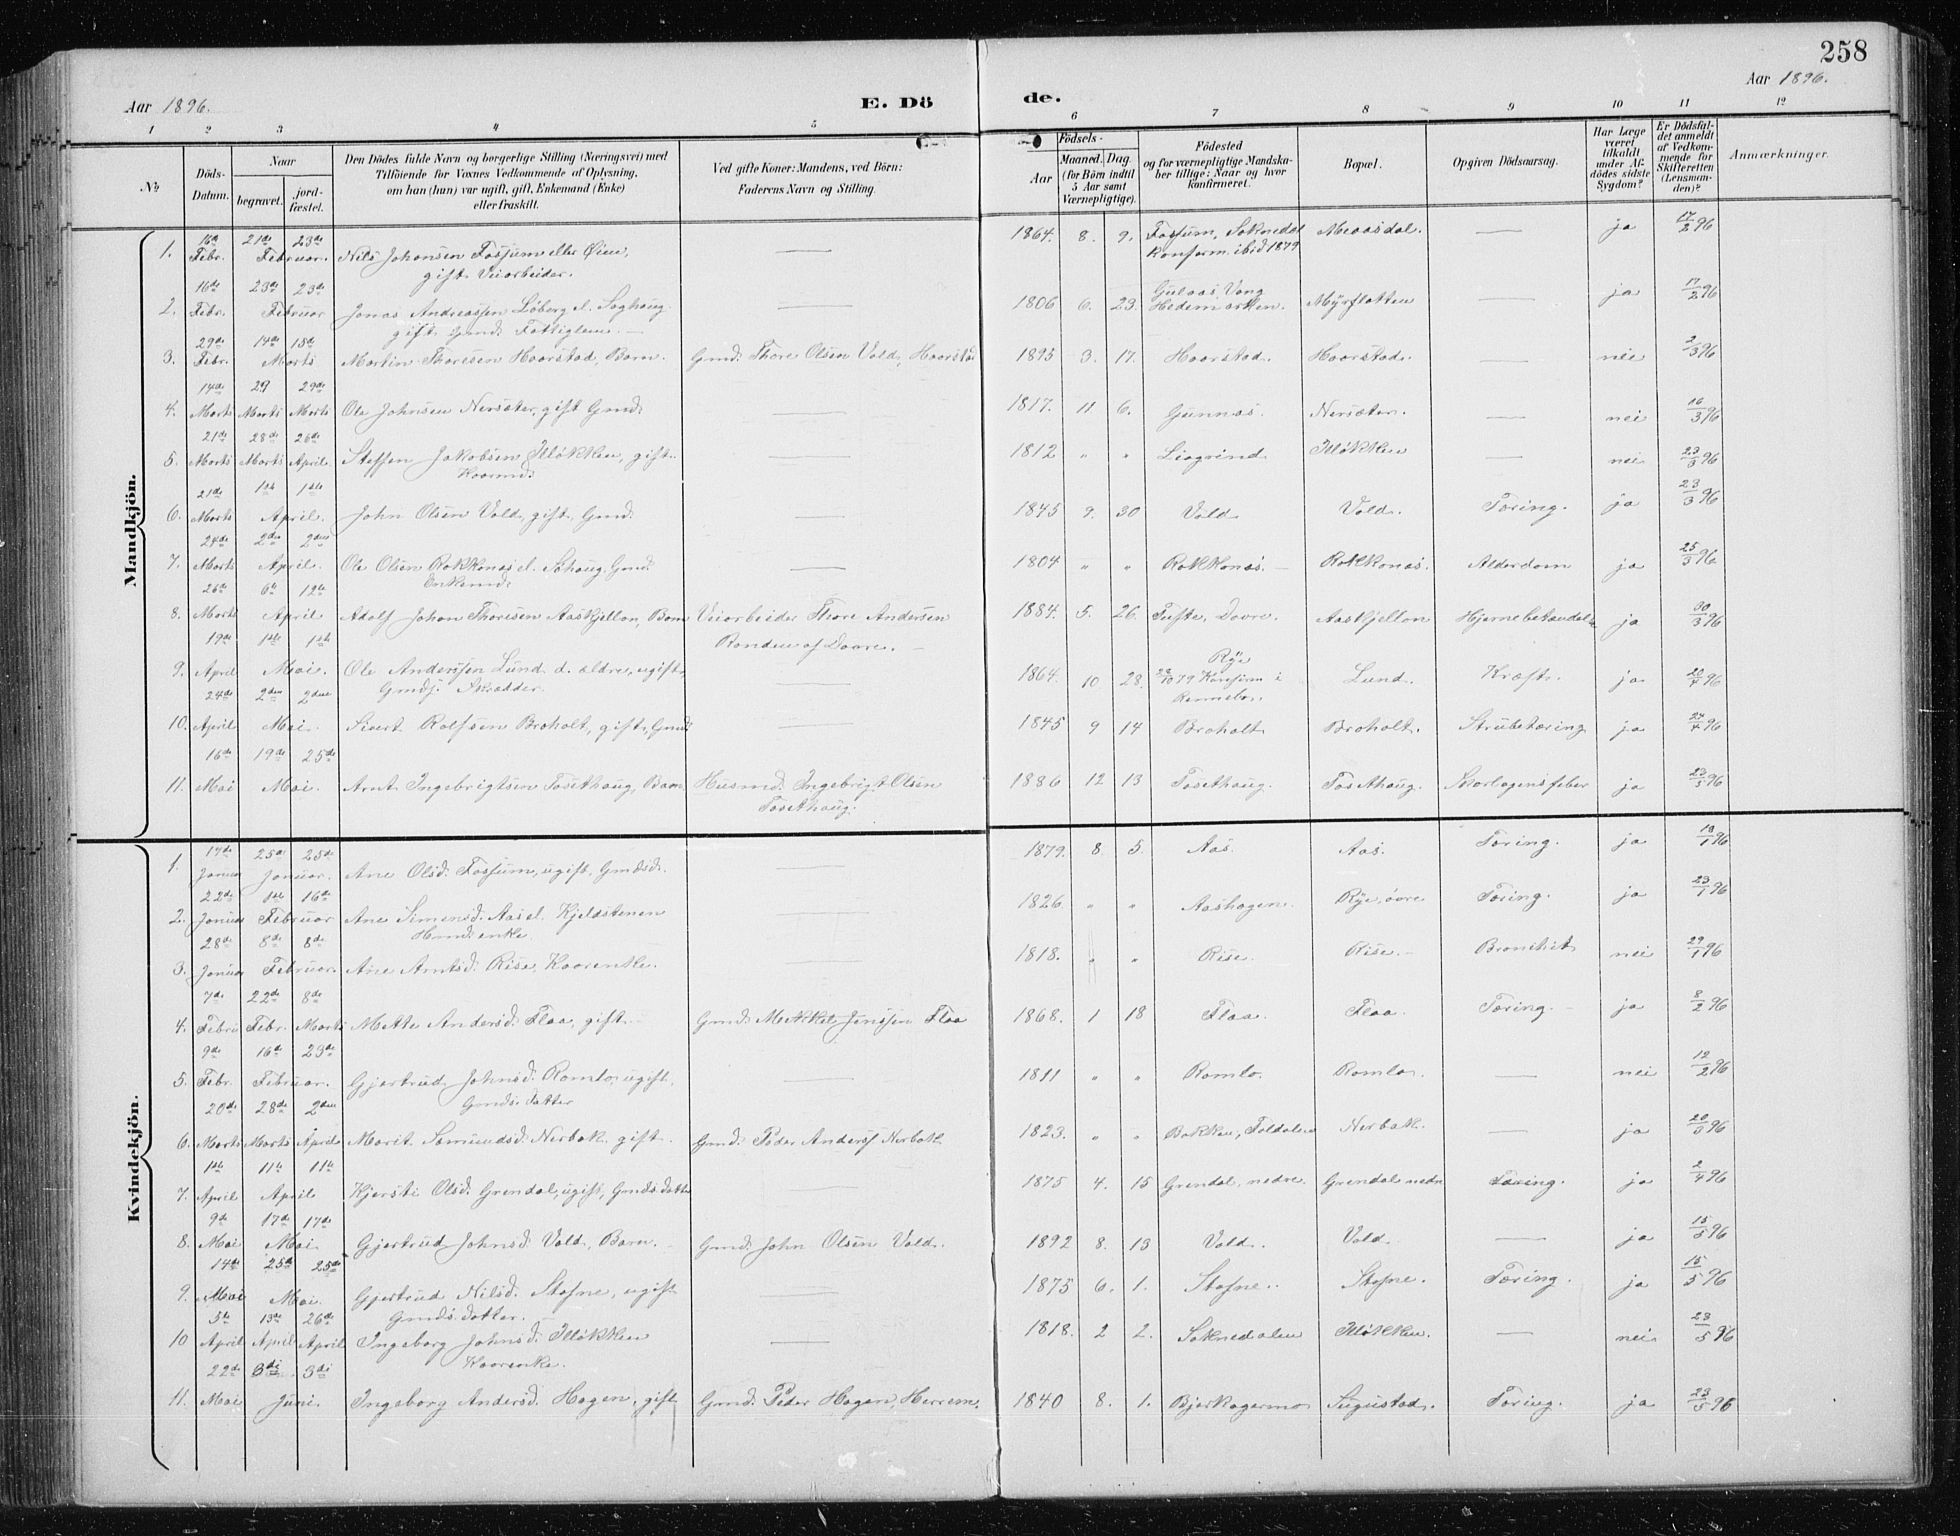 258
Aar 1896.
E. Dö
de.
Aar 1896.
1 2 3 4 5 6 7 8 9 10 11 12
No
Döds-Datum.
Naar
begravet.
jord-fæstet.
Den Dödes fulde Navn og borgerlige Stilling (Næringsvei) med
Tilföiende for Voxnes Vedkommende af Oplysning,
om han (hun) var ugift, gift, Enkemand (Enke)
eller fraskilt.
Ved gifte Koner: Mandens, ved Börn:
Faderens Navn og Stilling.
Födsels-
Aar
Maaned. Dag.
(for Börn indtil
5 Aar samt
Værnepligtige).
Födested
og for værnepligtige Mandska-
ber tillige: Naar og hvor
konfirmeret.
Bopæl.
Opgiven Dödsaarsag.
Har Læge
været
tilkaldt
under Af-
dödes sidste
Sygdom?
Er Dödsfal-
det anmeldt
af Vedkom-
mende for
Skifteretten
(Lensman-
den)?
Anmærkninger.
Mandkjön.
1. 16de Febr. 21de 23de Februar. Nils Johansen Fossum eller Öien, gift Veiarbeider. 1864. 8. 9. Fossum, Soknedal Konfirm. ibid 1879 Meaasdal. ja 17/2 96
2. 16de Febr. 23de 23de Februar Jonas Andreassen Löberg el. Soghaug gift Gmd. Fattiglem. 1806 6. 23. Vang Hedemarken. Myrflatten ja 17/2 96
3. 29de Febr. 14de 15de Marts Martin Thoresen Haarstad, Barn. Gmd. Thore Olsen Vold, Haarstad 1895 3. 17. Haarstad. Haarstad. nei 2/3 96
4. 14de Marts 29 Marts 29de Marts Ole Johnsen Nersæter, gift Gmd. 1817. 11. 6. Gunnes. Nersæter. nei 16/3 96
5. 21de Marts 28de Marts 26de April Steffen Jakobsen Illøkken, gift Kaarmd. 1812 " " Liagrind Illøkken nei 23/3 96
6. 21de Marts 1ste 1ste April. John Olsen Vold, gift, Gmd. 1845 9. 30 Vold Vold. Tæring. ja 23/3 96
7. 24de Marts 2den 2den April. Ole Olsen Rokkones el. Sohaug, Gmd. Enkemd. 1804 " " Rokkones. Rokkones. Alderdom ja 25/3 96
8. 26de Marts 6te 12te April Adolf Johan Thoresen Aaskjellon, Barn Veiarbeider Thore Andersen Randen af Dovre. 1884. 5. 26. Tufte, Dovre. Aaskjellon Hjernebetændelse ja 30/3 96
9. 19de April 1ste 1ste Mai. Ole Anderssen Lund d. ældre, ugift Gmdsj. Skrædder. 1864. 10 28. Rye 79 Konfirm i Rennebu. Lund. Kræft. ja 20/4 96
10. 24de April 2den 2den Mai. Sivert Rolfsen Broholt, gift, Gmd. 1845 9 14 Broholt Broholt. Strubetæring ja 24/4 96
11. 16de Mai 19de 25de Mai. Arnt Ingebrigtsen Tosethaug, Barn Husmd. Ingebrigt Olsen Tosethaug. 1886 12 13 Tosethaug. Tosethaug. Skarlagensfeber ja 23/5 96
Kvindekjön.
1. 17de Januar 25de 25de Januar. Ane Olsd. Fossum, ugift, Gmdsd. 1879. 8 5. Aas. Aas. Tæring. ja 18/1 96
2. 22de Januar 1ste 16de Februar Ane Simensd. Aas el. Kjeldstenen Hmds enke 1826. " " Aashagen. Rye, øvre Tæring. ja 23/1 96
3. 28de Januar 8de 8de Februar. Ane Arntsd. Rise, Kaarenke. 1818. " " Rise. Rise. Bronchit nei 29/1 96
4. 7de Febr. 22de Febr. 8de Marts Mette Andersd. Flaa, gift Gmd. Mekkel Jensen Flaa 1868. 1 18 Flaa. Flaa. Tæring. ja 8/2 96
5. 9de Febr. 16de 23de Februar. Gjertrud Johnsd. Romlo, ugift, Gmds. datter 1811 " " Romlo. Romlo. nei 12/2 96
6. 20de Marts 28de Marts 2den April Marit Samundsd. Nerbak, gift. Gmd. Peder Anders. Nerbak 1823. " " Bakken, Foldalen Nerbak. ja 20/3 96
7. 1ste April 11te 11te April Kjersti Olsd. Grendal, ugift, Gmds datter 1875 4. 15 Grendal, nedre. Grendal nedre Tæring. ja 2/4 96
8. 9de Mai 17de 17de Mai. Gjertrud Johnsd. Vold, Barn. Gmd. John Olsen Vold. 1892 8. 13 Vold. Vold. ja 15/5 96
9. 14de Mai 25de 25de Mai. Gjertrud Nilsd. Stofne, ugift Gmds. datter. 1875 6. 1. Stofne. Stofne. Tæring. ja 15/5 96
10 5te April 13de April 26de April Ingeborg Johnsd. Illøkken Kaarenke. 1818. 2 2. Soknedalen Illøkken. nei 23/5 96
11. 22de Mai 3die 3die Juni. Ingeborg Andersd. Hagen, gift Gmd. Peder Hagen, Herrem. 1840 8. 1. Bjerkagermo Sugustad. Tæring. ja 23/5 96